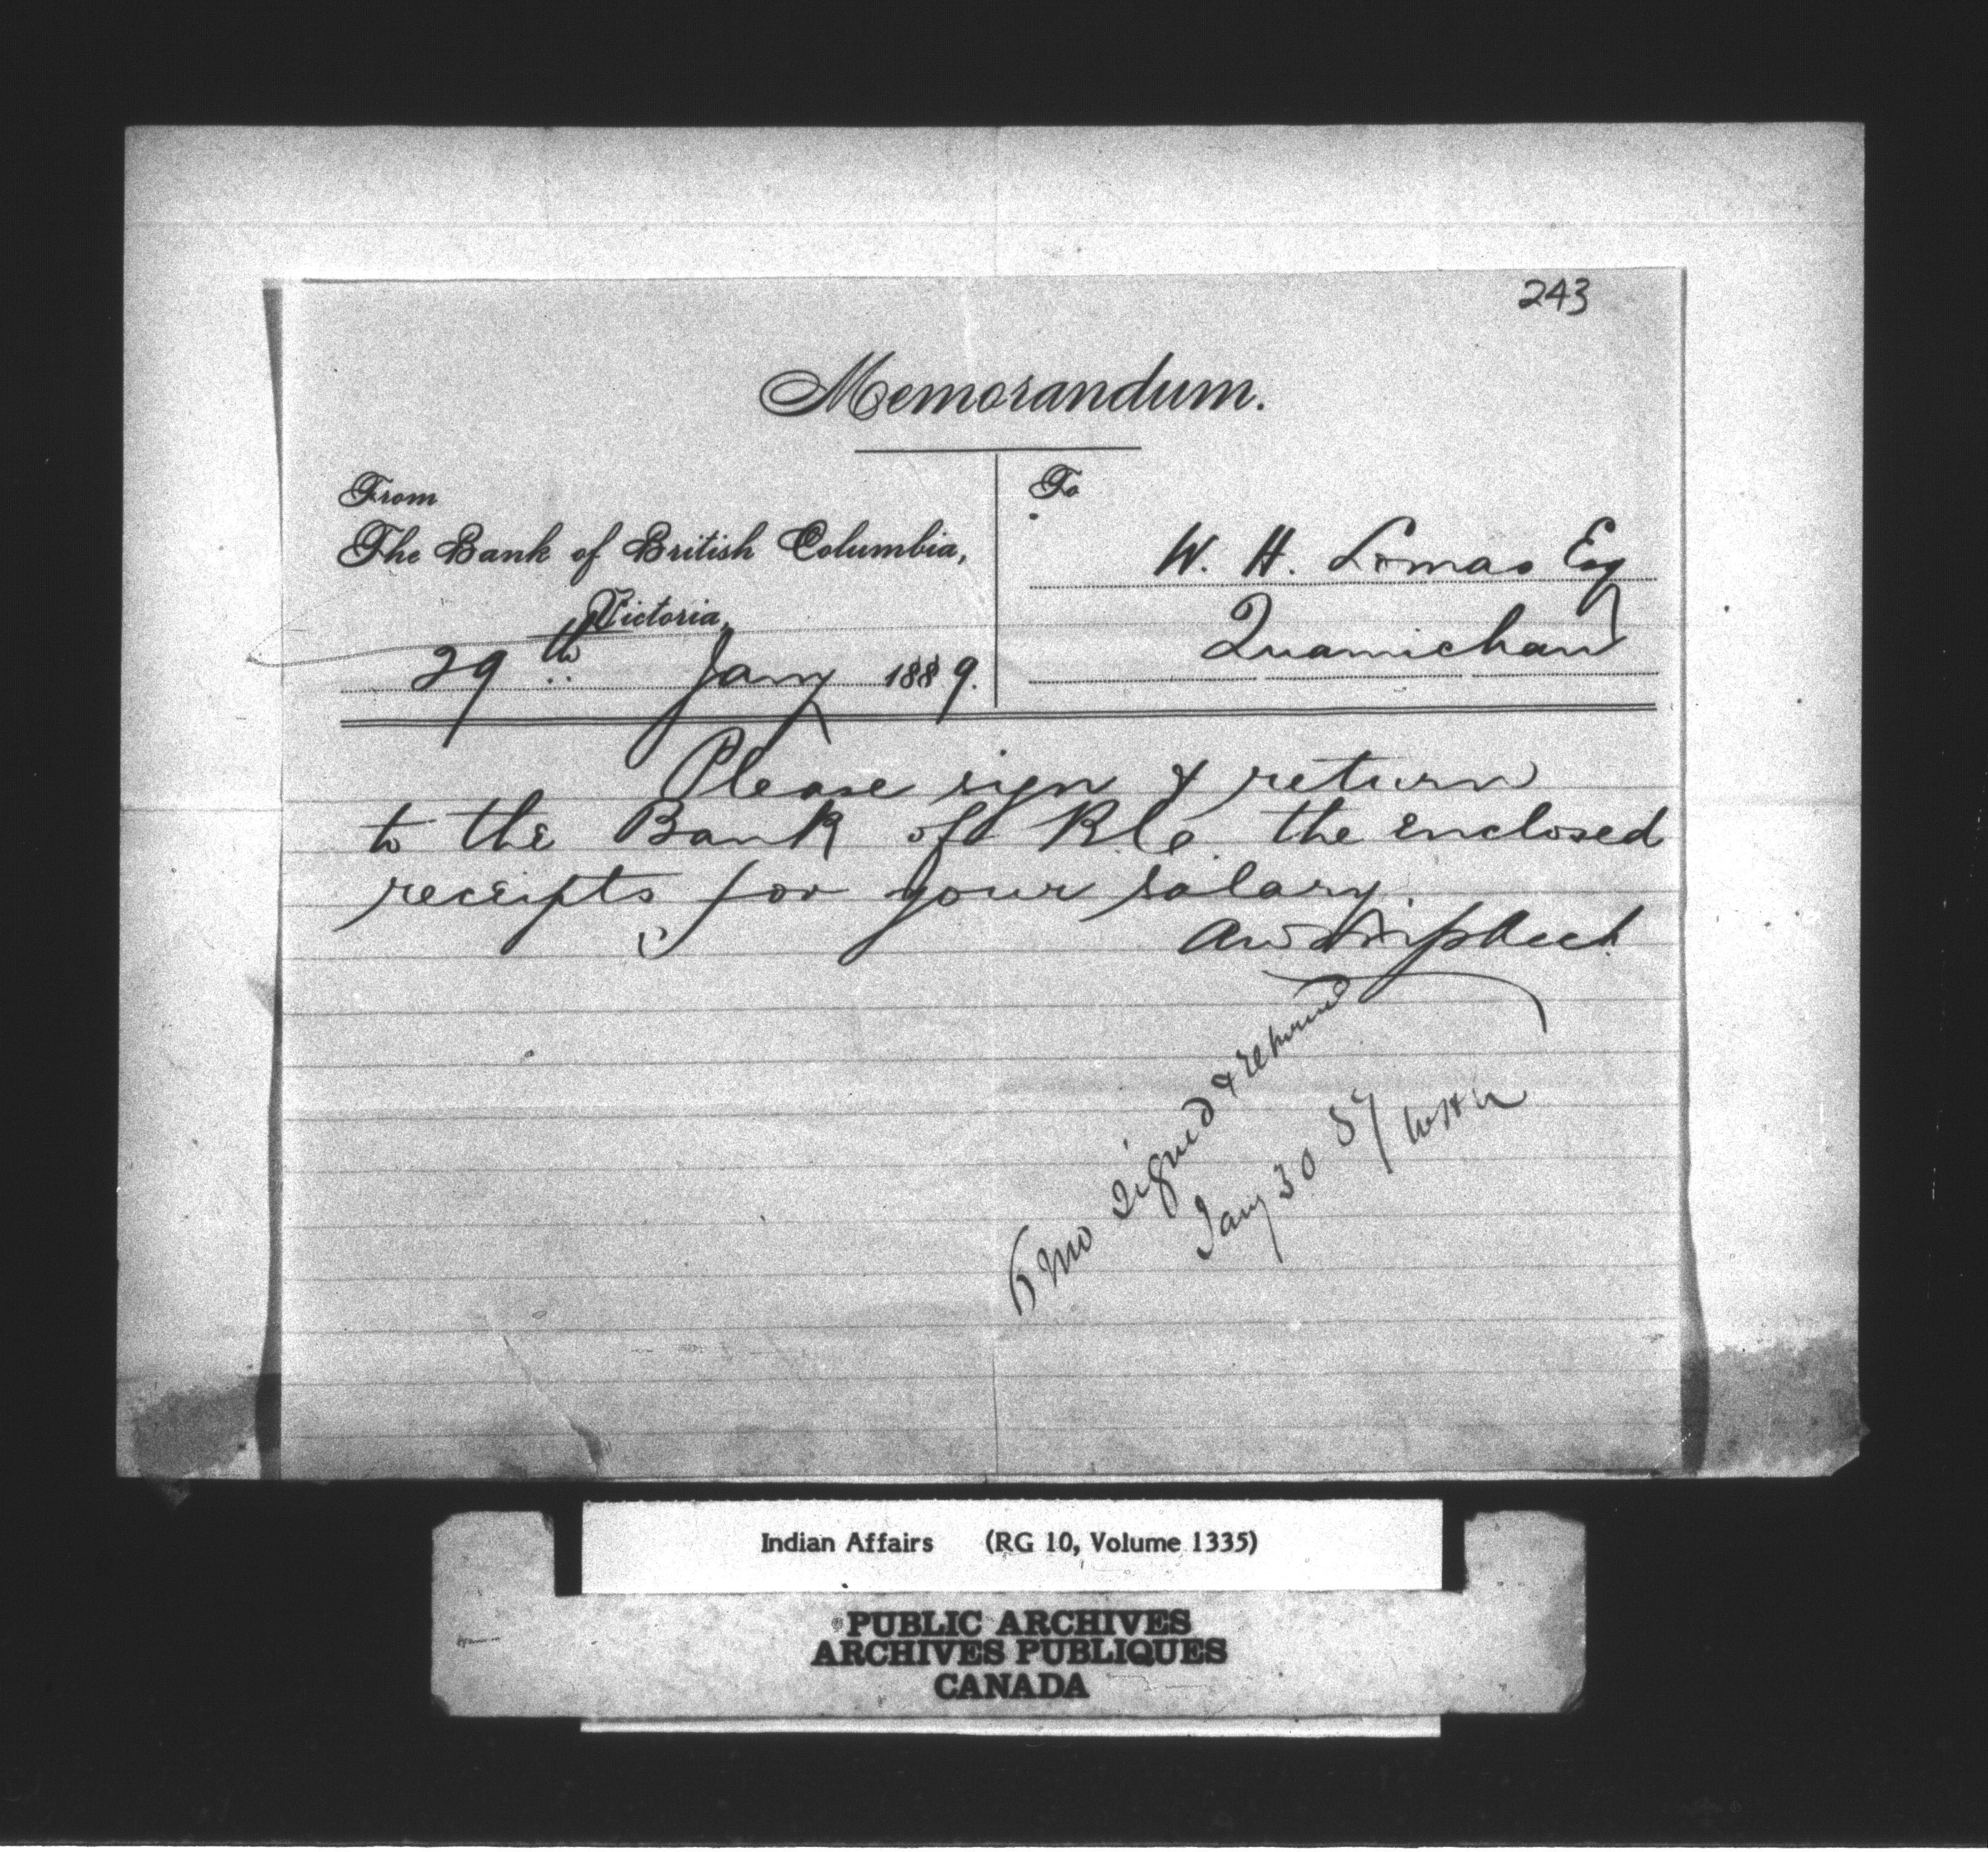 243
Memorandum.
From
The Bank of British Columbia,
Victoria,
29th Jany 1889.
To
W. H. Lomas Esq
Quamichan
Please sign & return
to the Bank of B.C. the enclosed
receipts for your salary.
signed & returned
Jany 30 89 WHL
Indian Affairs (RG 10, Volume 1335)
PUBLIC ARCHIVES
ARCHIVES PUBLIQUES
CANADA